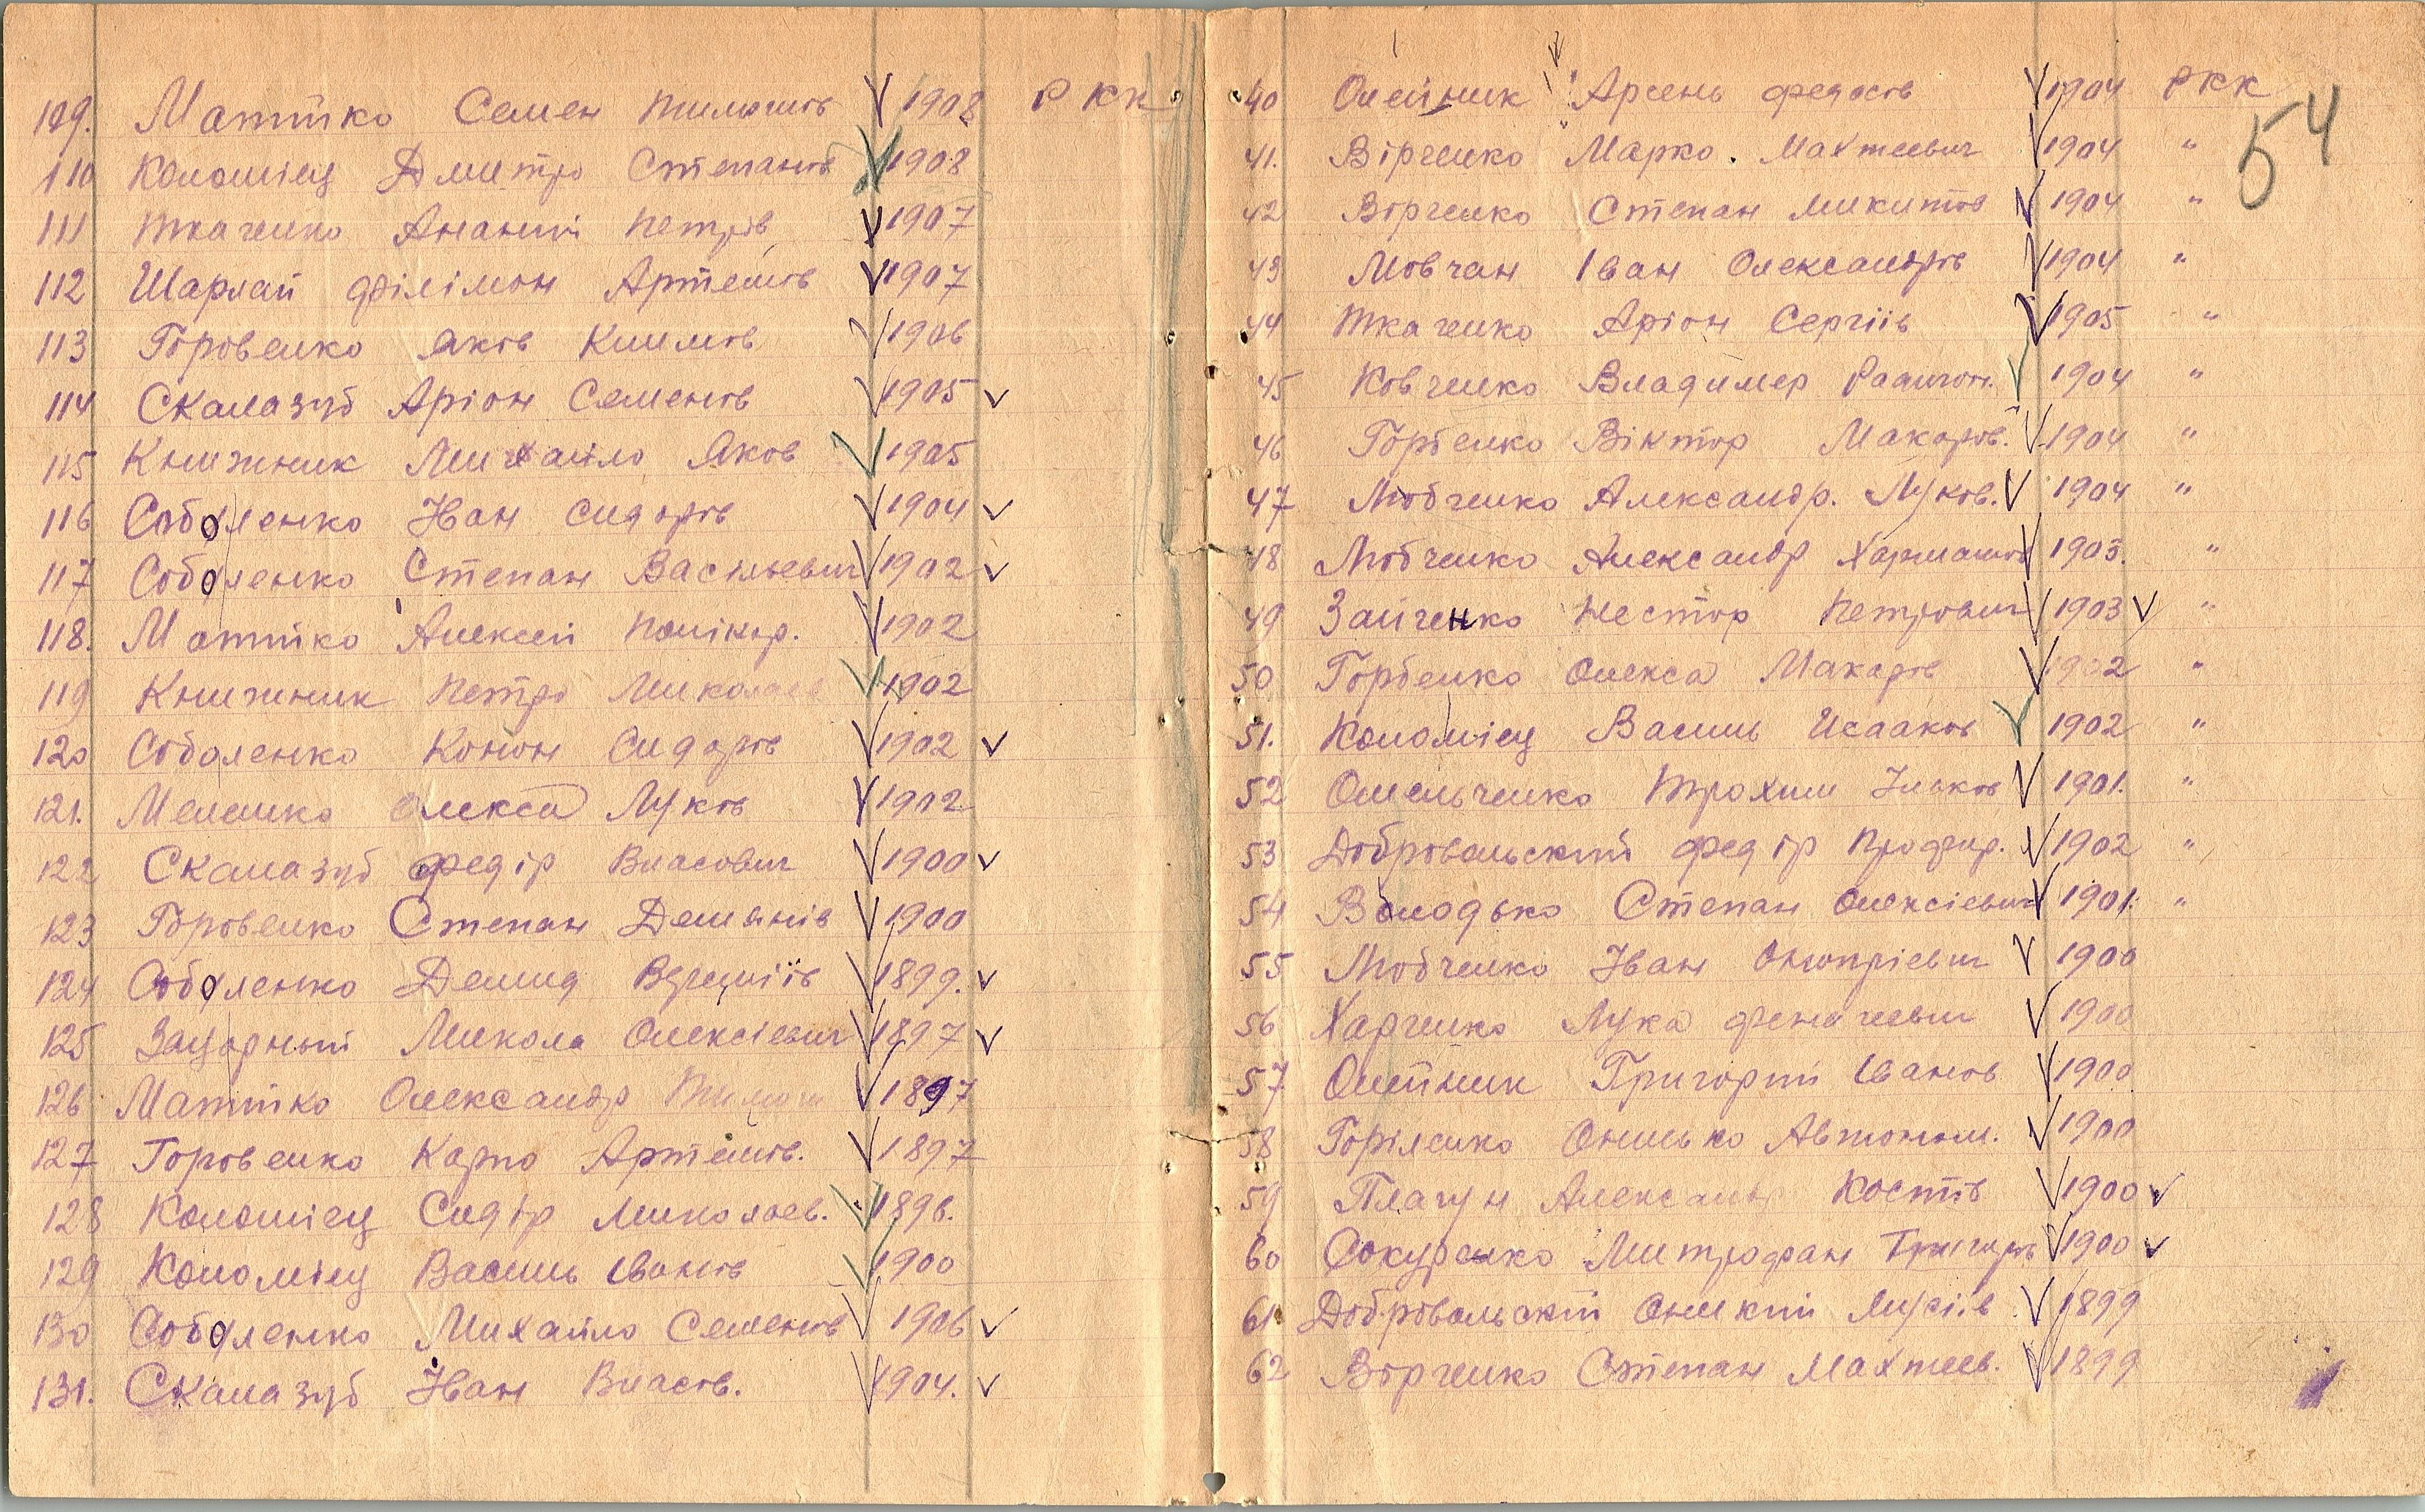 109. Матійко Семен Тимошів V 1908 РКК
110 Коломієц Дмитро Степанов V 1908
111 Ткаченко Ананий Петрів V 1907
112 Шарлай Філімон Артемов V 1907
113 Горовенко Яков Климов V 1906
114 Скалазуб Аріон Семенов V 1905 V
115 Книжник Михайло Яков V 1905
116 Соболенко Іван Сидоров V 1904 V
117 Соболенко Степан Васильевич V 1902 V
118. Матійко Алексей Полікар. V 1902
119 Книжник Петро Миколаев V 1902
120 Соболенко Конон Сидоров V 1902 V
121. Мелешко Олекса Луков V 1902
122 Скалазуб Федір Власович V 1900 V
123 Горовенко Степан Демянів V 1900
124 Соболенко Демид V 1899. V
125 Микола Олексієвич V 1897 V
126 Матійко Олександр Тимош V 1897
127 Горовенко Карпо Артемов. V 1897
128 Коломієц Сидір Миколаев. V 1896.
129 Коломієц Василь Іванов V 1900
130 Соболенко Михайло Семенов V 1906 V
131. Скалазуб Іван Власов. V 1904. V
40 Олейник Арсень Федосов V 1904 РКК
41. Вірченко Марко. Махтеевич V 1904 "
42 Ворченко Степан Микитов V 1904 "
43 Мовчан Іван Олександров V 1904 "
44 Ткаченко Аріон Сергіїв V 1905 "
45 Ковченко Владимер V 1904 "
46 Горбенко Віктор Макаров. V 1904 "
47 Любченко Александр. Луков. V 1904 "
48 Любченко Александр V 1903. "
49 Зайченко Нестор Петрович V 1903 V "
50 Горбенко Олекса Макаров V 1902 "
51. Коломієц Василь Исааков V 1902 "
52 Омельченко Трохим Ільков V 1901. "
53 Добровольский Федір Профир. V 1902 "
54 Володько Степан Олексієвич V 1901. "
55 Любченко Іван Онопрієвич V 1900
56 Харченко Лука V 1900
57 Олійник Григорій Іванов V 1900
58 Горіленко Онисько Автоном. V 1900
59 Плачун Александр Костів V 1900 V
60 Сокуренко Митрофан Григоров V 1900 V
61 Добровольский Оникий V 1899
62 Ворченко Степан Махтеев. V 1899
54